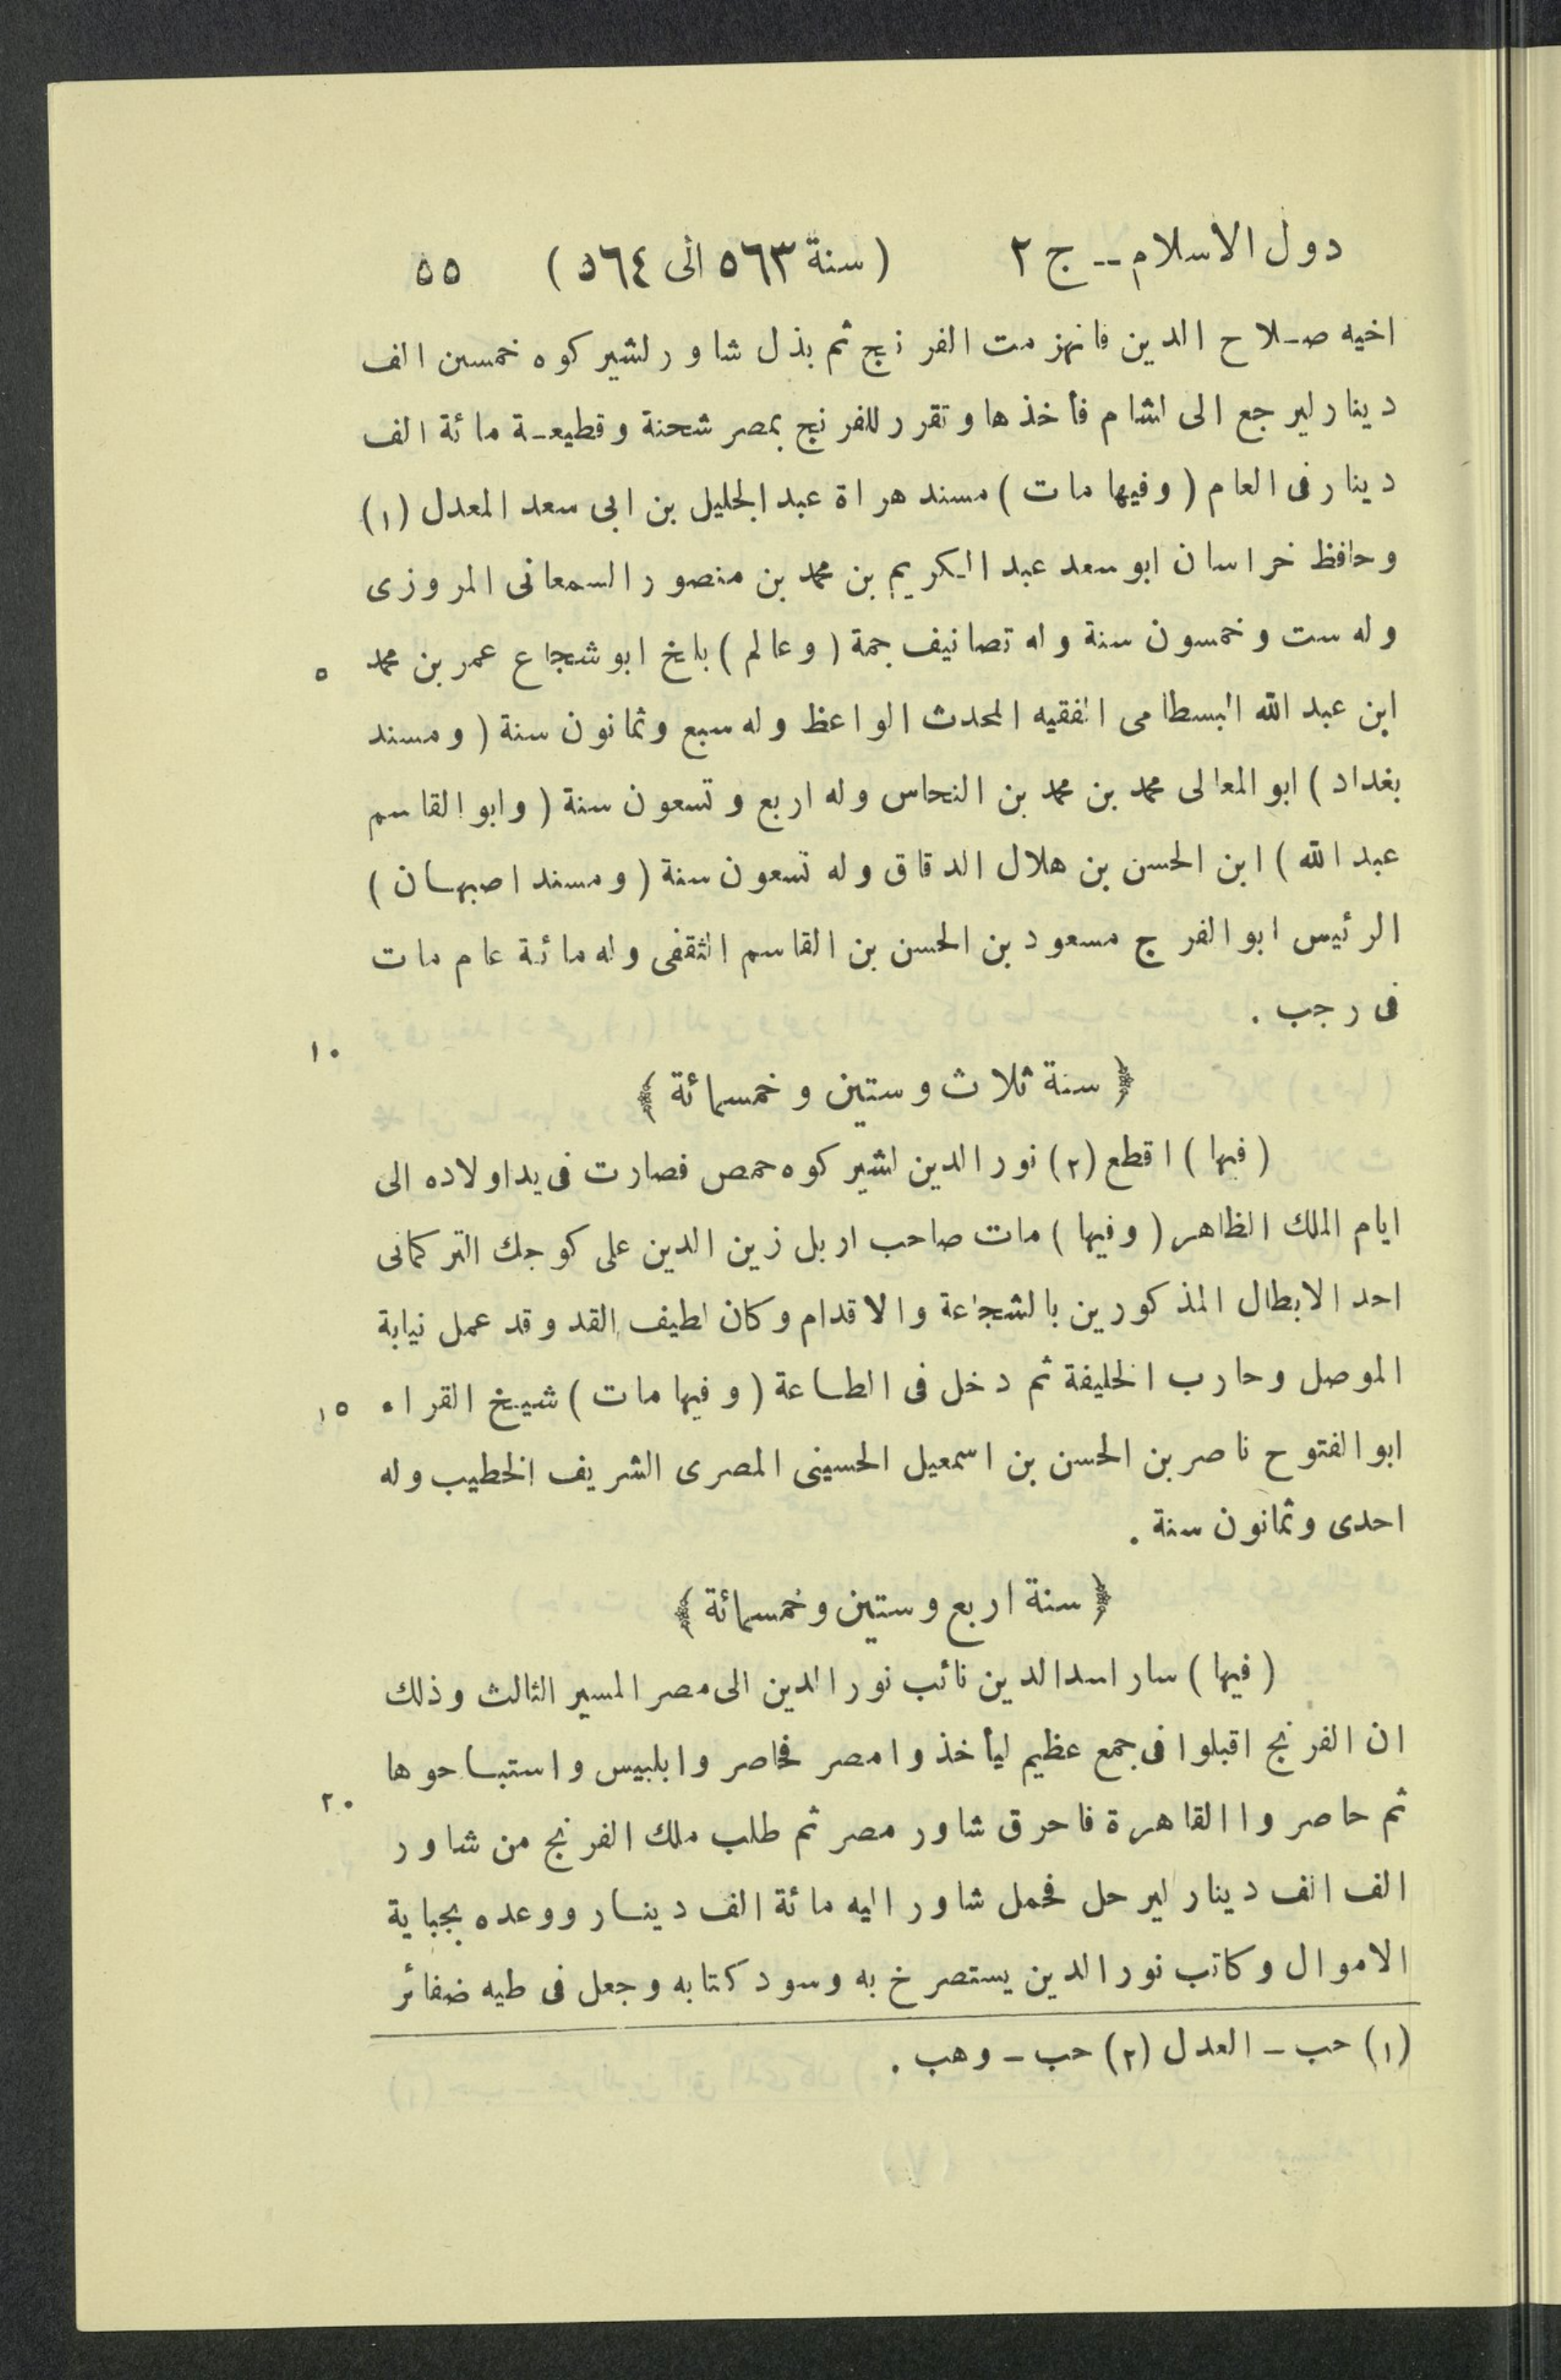 دول الاسلام -- ج ٢ (سنة ٥٦٣ الى ٥٦٤) ٥٥
اخيه صلاح الدين فانهزمت الفرنج ثم بذل شاور لشيركوه خمسين الف
دينار ليرجع الى الشام فأخذها وتقرر للفرنج بمصر شحنة وقطيعة مائة الف
دينار فى العام (وفيها مات) مسند هراة عبد الجليل بن ابى سعد المعدل (١)
وحافظ خراسان ابو سعد عبد الكريم بن محمد بن منصور السمعانى المروزى
وله ست وخمسون سنة وله تصانيف جمة (وعالم) بلخ ابو شجاع عمر بن محمد ٥
ابن عبد الله البسطامى الفقيه المحدث الواعظ وله سبع وثمانون سنة (ومسند
بغداد) ابو المعالى محمد بن محمد بن النحاس وله اربع وتسعون سنة (وابو القاسم
عبد الله) ابن الحسن بن هلال الدقاق وله تسعون سنة (ومسند اصبهان)
الرئيس ابو الفرج مسعود بن الحسن بن القاسم الثقفى وله مائة عام مات
فى رجب . ١٠
﴿ سنة ثلاث وستين وخمسمائة ﴾
(فيها) اقطع (٢) نور الدين لشيركوه حمص فصارت فى يد اولاده الى
ايام الملك الظاهر (وفيها) مات صاحب اربل زين الدين على كوجك التركمانى
احد الابطال المذكورين بالشجاعة والاقدام وكان لطيف القد وقد عمل نيابة
الموصل وحارب الخليفة ثم دخل فى الطاعة (وفيها مات) شيخ القراء ١٥
ابو الفتوح ناصر بن الحسن بن اسمعيل الحسينى المصرى الشريف الخطيب وله
احدى وثمانون سنة .
﴿ سنة اربع وستين وخمسمائة ﴾
(فيها) سار اسد الدين نائب نور الدين الى مصر المسير الثالث وذلك
ان الفرنج اقبلوا فى جمع عظيم ليأخذوا مصر فحاصروا بلبيس واستباحوها
ثم حاصروا القاهرة فاحرق شاور مصر ثم طلب ملك الفرنج من شاور ٢٠
الف الف دينار ليرحل فحمل شاور اليه مائة الف دينار ووعده بجباية
الاموال وكاتب نور الدين يستصرخ به وسود كتابه وجعل فى طيه ضفائر
(١) حب - العدل (٢) حب - وهب .